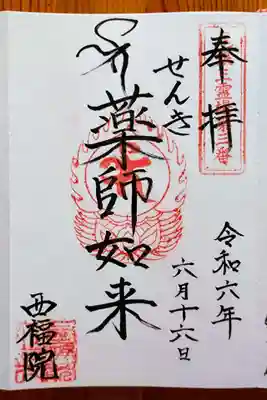 奉拝
令和六年
六月十六日
せんき
薬師如来
西福院